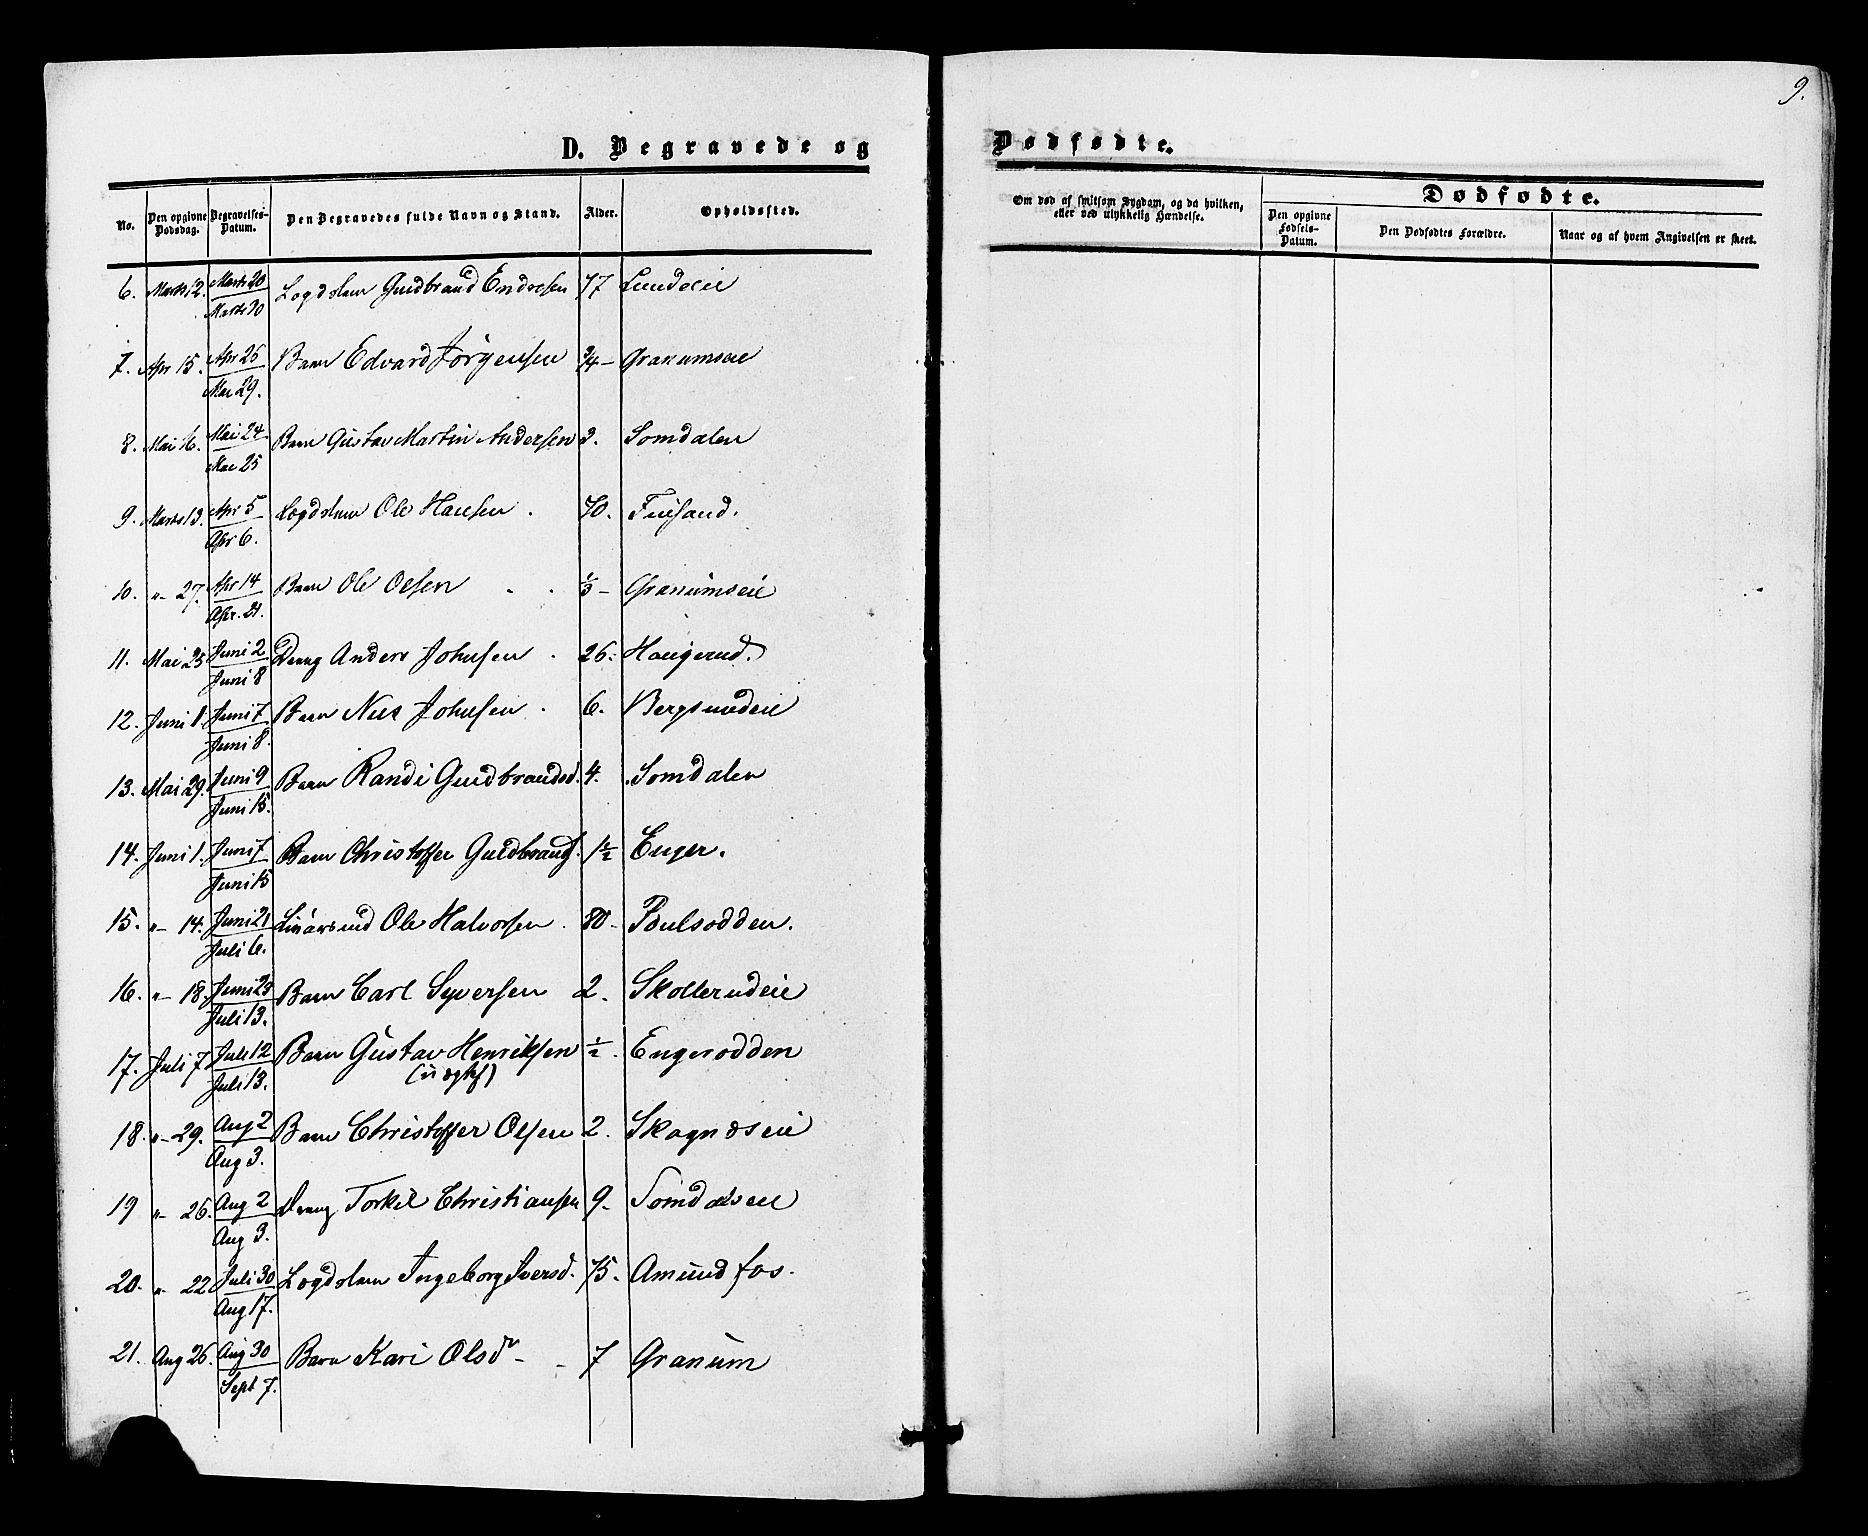 9.
D. Begravede og Dødfødte.
No. Den opgivne Dødsdag. Begravelses-Datum. Den Begravedes fulde Navn og Stand. Alder. Opholdssted.
Om død af smitsom Sygdom, og da hvilken, eller ved ulykkelig Hændelse.
Dødfødte.
Den opgivne Fødsels-Datum. Den Dødfødtes Forældre. Naar og af hvem Angivelsen er skeet.
6. Marts 12. Marts 20 Marts 30 Lægdslem Guldbrand Endresen 77 Lundeie
7. Apr 15. Apr 25 Mai 29. Barn Edvard Jørgensen 3/4 – Granumseie
8. Mai 16. Mai 24. Mai 25 Barn Gustav Martin Andersen 3. Somdalen
9. Marts 13. Apr 5 Apr 6. Lægdslem Ole Hansen . 70. Finsand.
10. „– 27. Apr 14 Apr. 21. Barn Ole Olsen . . 1/3 – Granumseie
11. Mai 25 Juni 2 Juni 8 Dreng Anders Johnsen . 26. Haugerud.
12. Juni 1. Juni 7 Juni 8. Barn Nils Johnsen . 6. Bergsundeie
13. Mai 29. Juni 9 Juni 15. Barn Randi Guldbrandsd. 4. Somdalen
14. Juni 1. Juni 7 Juni 15 Barn Christoffer Guldbrands. 1 1/2 Enger.
15. „– 14. Juni 21 Juli 6. Ole Halvorsen . 80 – Poulsodden.
16. „– 18. Juni 23 Juli 13. Barn Carl Syversen 2. Skollerudeie
17. Juli 7. Juli 12 Juli 13. Barn Gustav Henriksen 1/2. Engerodden
(uægtef)
18. „– 29. Aug 2 Aug 3. Barn Christoffer Olsen 2. Skagnæseie
19 „– 26. Aug 2 Aug 3. Dreng Torkil Christiansen 9. Somdalseie
20. „– 22 Juli 30 Aug 17. Lægdslem Ingeborg Iversd. 75. Amundfos.
21. Aug 26. Aug 30 Sept 7. Barn Kari Olsdr – – 7 Granum